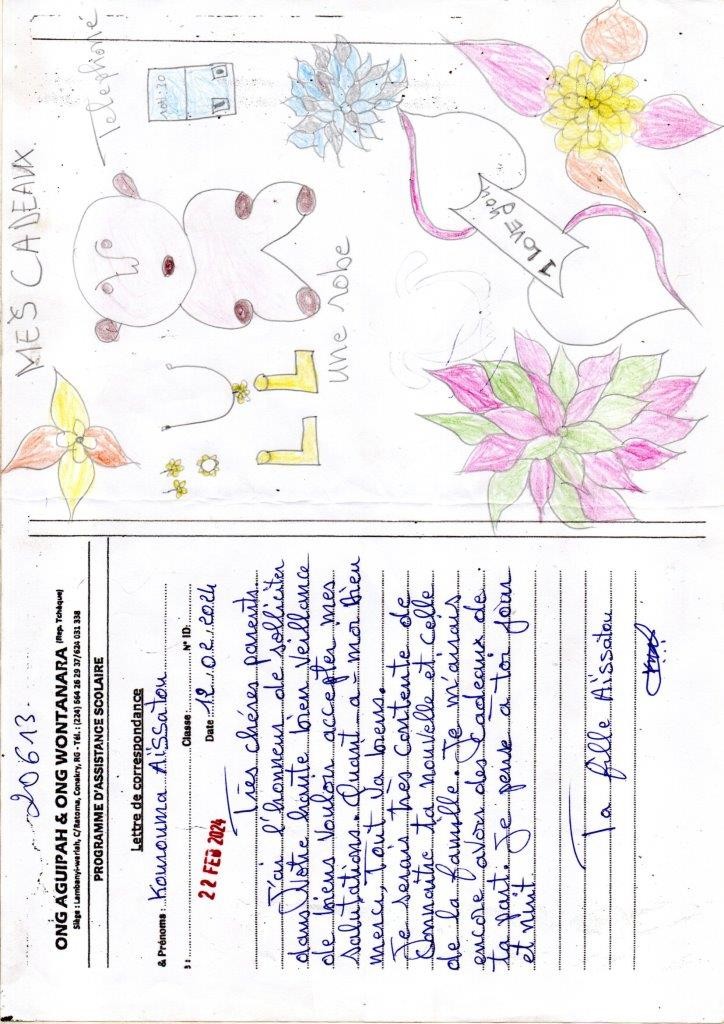 20613
ONG AGUIPAH & ONG WONTANARA (Rep. Tchèque)
Siège : Lambanyi-wariah, C/Ratoma, Conakry, RG - Tél. : (224) 664 26 29 37/624 031 338
PROGRAMME D'ASSISTANCE SCOLAIRE
Lettre de correspondance
& Prénoms : Kourouma Aïssatou
s : Classe : N° ID:
22 FEB 2024
Date : 12.02.2024
Très chères parents.
J'ai l'honneur de solliciter
dans votre haute bien veillance
de biens vouloir accepter mes
salutations. Quant à moi Dieu
merci, tout va biens.
Je serais très contente de
connaitre ta nouvelle et celle
de la famille. Je m'airais
encore avoir des cadeaux de
ta part. Je pense à toi jour
et nuit
Ta fille Aïssatou
MES CADEAUX
Telephone
une robe
I LOVE you